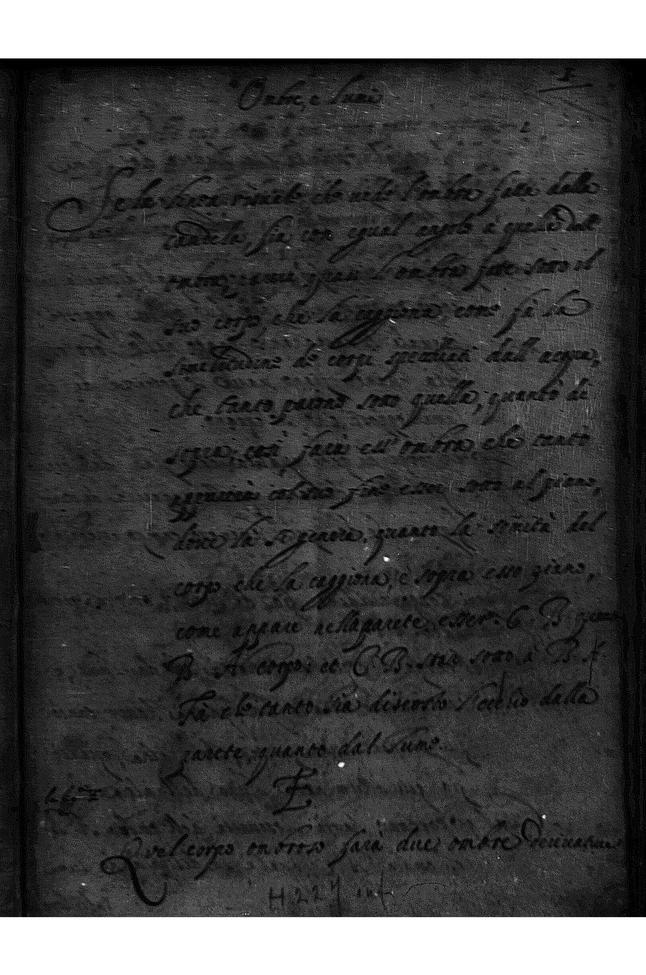 1
Ombre, e lumi
Se la linea visuale che vede l'ombra fatta dalla
candela, sia con equal angolo a quello dell'
ombra, parrà quasi l'ombra fatta sotto il
suo corpo, che la caggiona, come fà la
similitudine de corpi specchiati dall'acqua,
che tanto paiono sotto quella, quanto di
sopra, così farà ess'ombra, che tanto
col suo fine esser sotto al piano,
dove la si genera, quanto la somità del
corpo che la caggiona, è sopra esso piano,
come appare nella parete esser C B
B A corpo, et C B star sotto à B A.
Fà che tanto sia discosto l'occhio dalla
parete, quanto dal lume.
E
Quel corpo ombroso farà due ombre derivative
H 227 inf